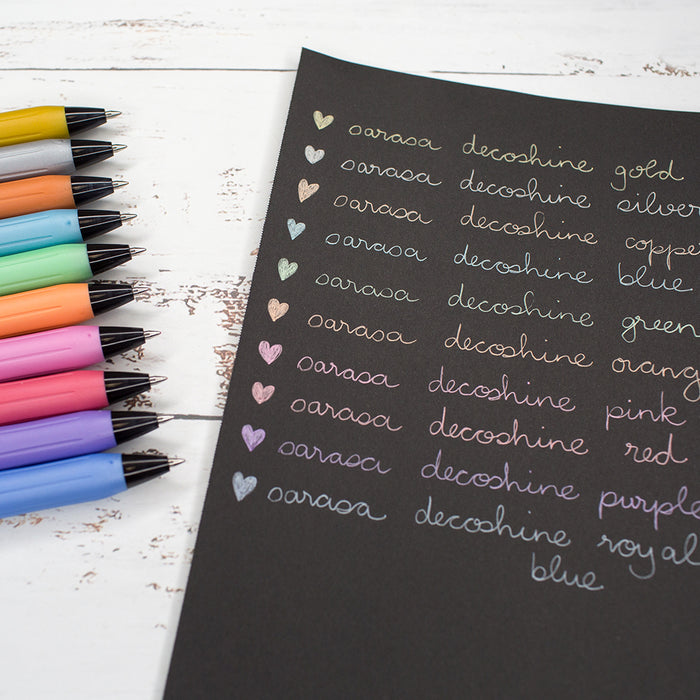 sarasa decoshine gold
sarasa decoshine silver
sarasa decoshine coppe
sarasa decoshine blue
sarasa decoshine green
sarasa decoshine orang
sarasa decoshine pink
sarasa decoshine red
sarasa decoshine purple
sarasa decoshine royal
blue